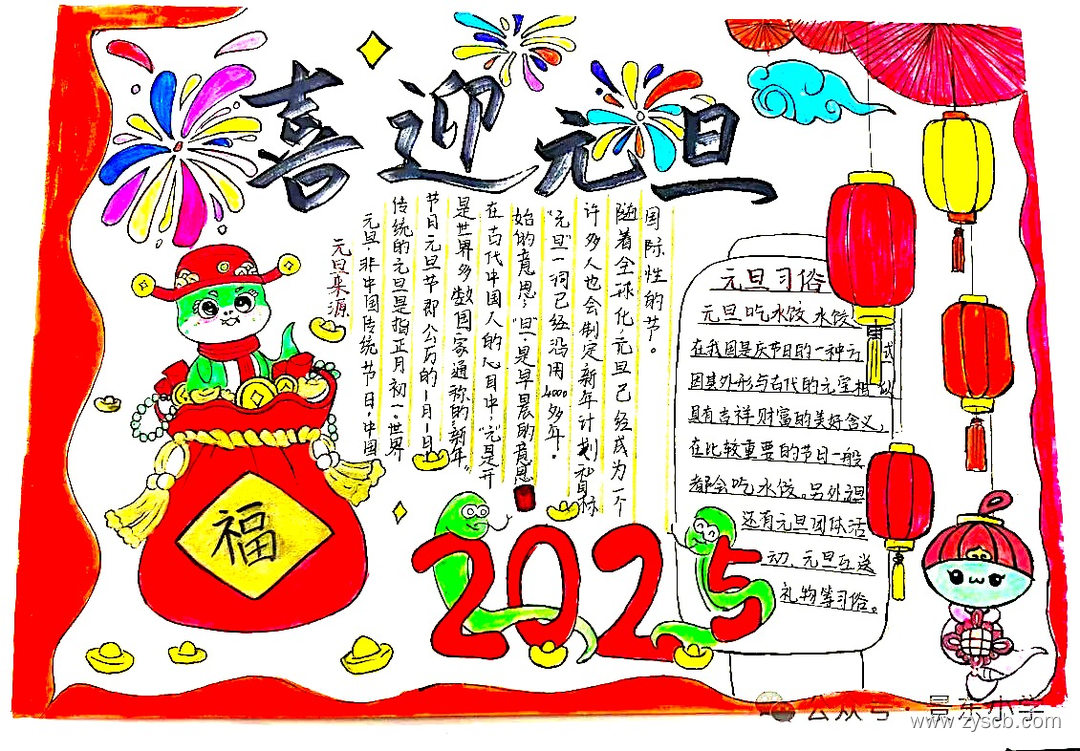 喜迎元旦
元旦来源
元旦,非中国传统节日,中国
传统的元旦是指正月初一。世界
节日元旦节即公历的1月1日
是世界多数国家通称的"新年"
在古代中国人的心目中,"元"是开
始的意思,"旦"是早晨的意思
"元旦"一词已经沿用4000多年。
许多人也会制定新年计划和目标
随着全球化,元旦已经成为一个
国际性的节。
福
2025
元旦习俗
元旦吃水饺水饺
在我国是庆节日的一种方式
因其外形与古代的元宝相似
具有吉祥财富的美好含义,
在比较重要的节日一般
都会吃水饺。另外
还有元旦团体活
动、元旦互送
礼物等习俗。
公众号·景东小学
www.zyscb.com